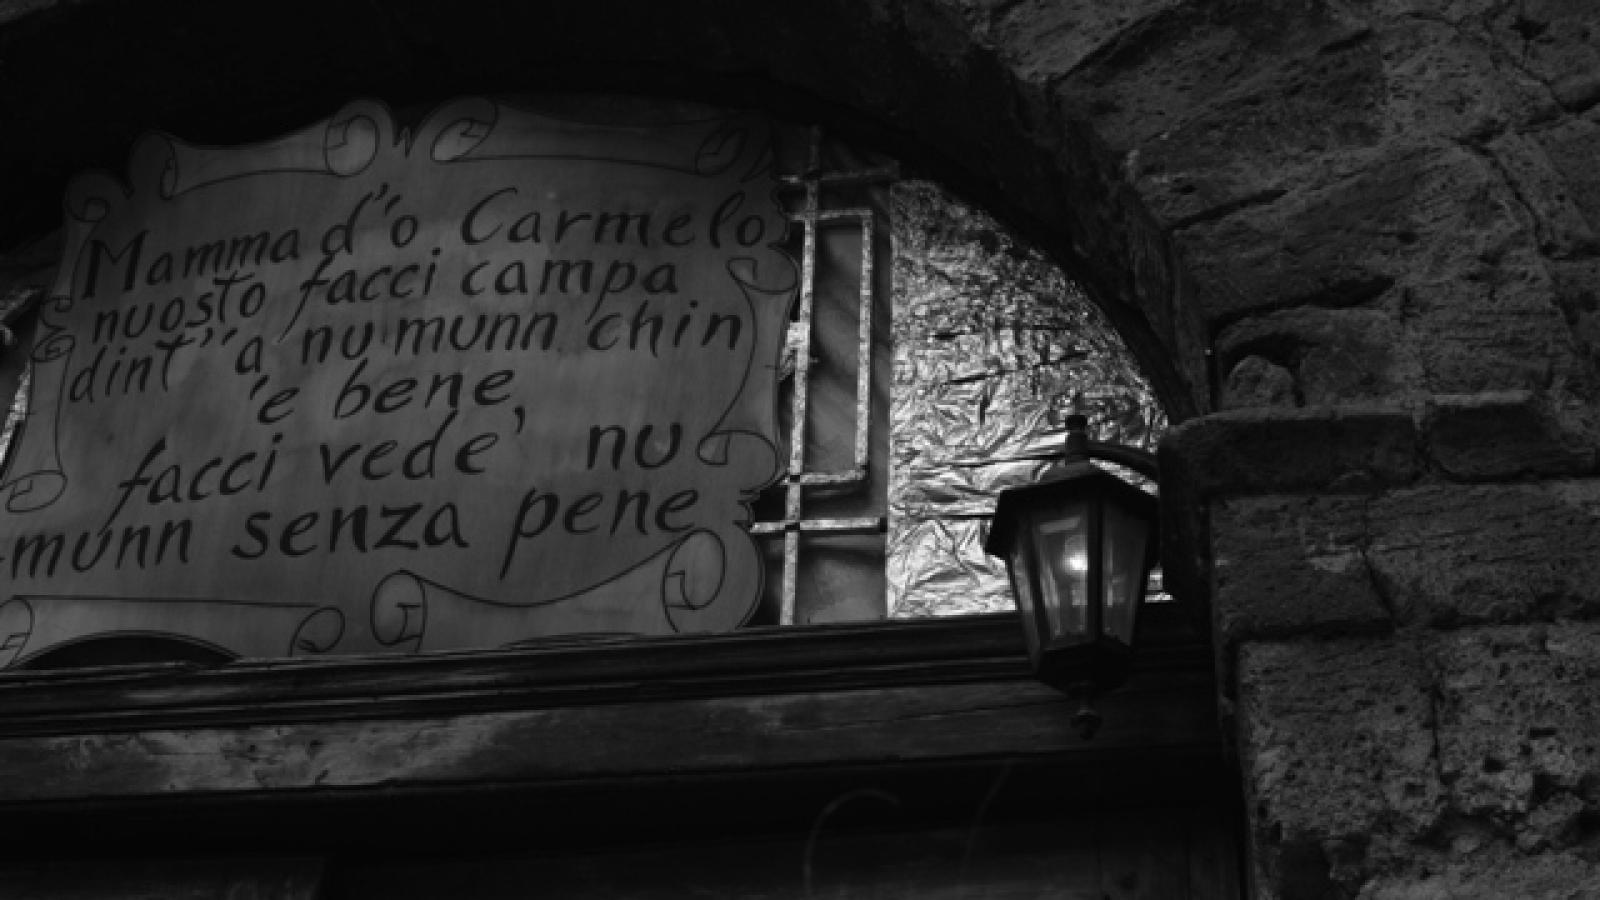 Mamma d''o Carmelo
nuosto facci campa
dint''a nu munn chin
'e bene,
facci vede' nu
munn senza pene